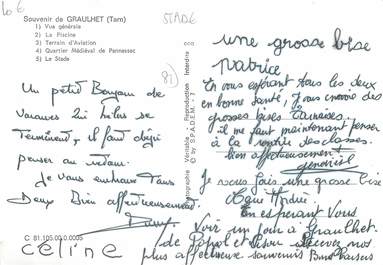 10 €
STADE
81)
Souvenir de GRAULHET (Tarn)
1) Vue générale
2) La Piscine
3) Terrain d'Aviation
4) Quartier Médiéval de Pannessac
5) Le Stade
Un petit Bonjour de
vacances qui hélas se
terminent, il faut déjà
penser au retour.
Je vous embrasse Tous
Deux Bien affectueusement
C 81.105.00.0.0005
céline
Photographie Véritable - Reproduction Interdite
© by S.P.A.D.E.M. -
une grosse bise
Patrice
En vous espérant tous les deux
en bonne santé, je vous envoie des
grosses bises Tarnaises.
il me faut maintenant penser
à la rentrée des classes.
bien affectueusement
Je vous fais une grosse bise
En espérant Vous
Voir un jour à Graulhet.
de et recevez nos
plus affectueux souvenirs